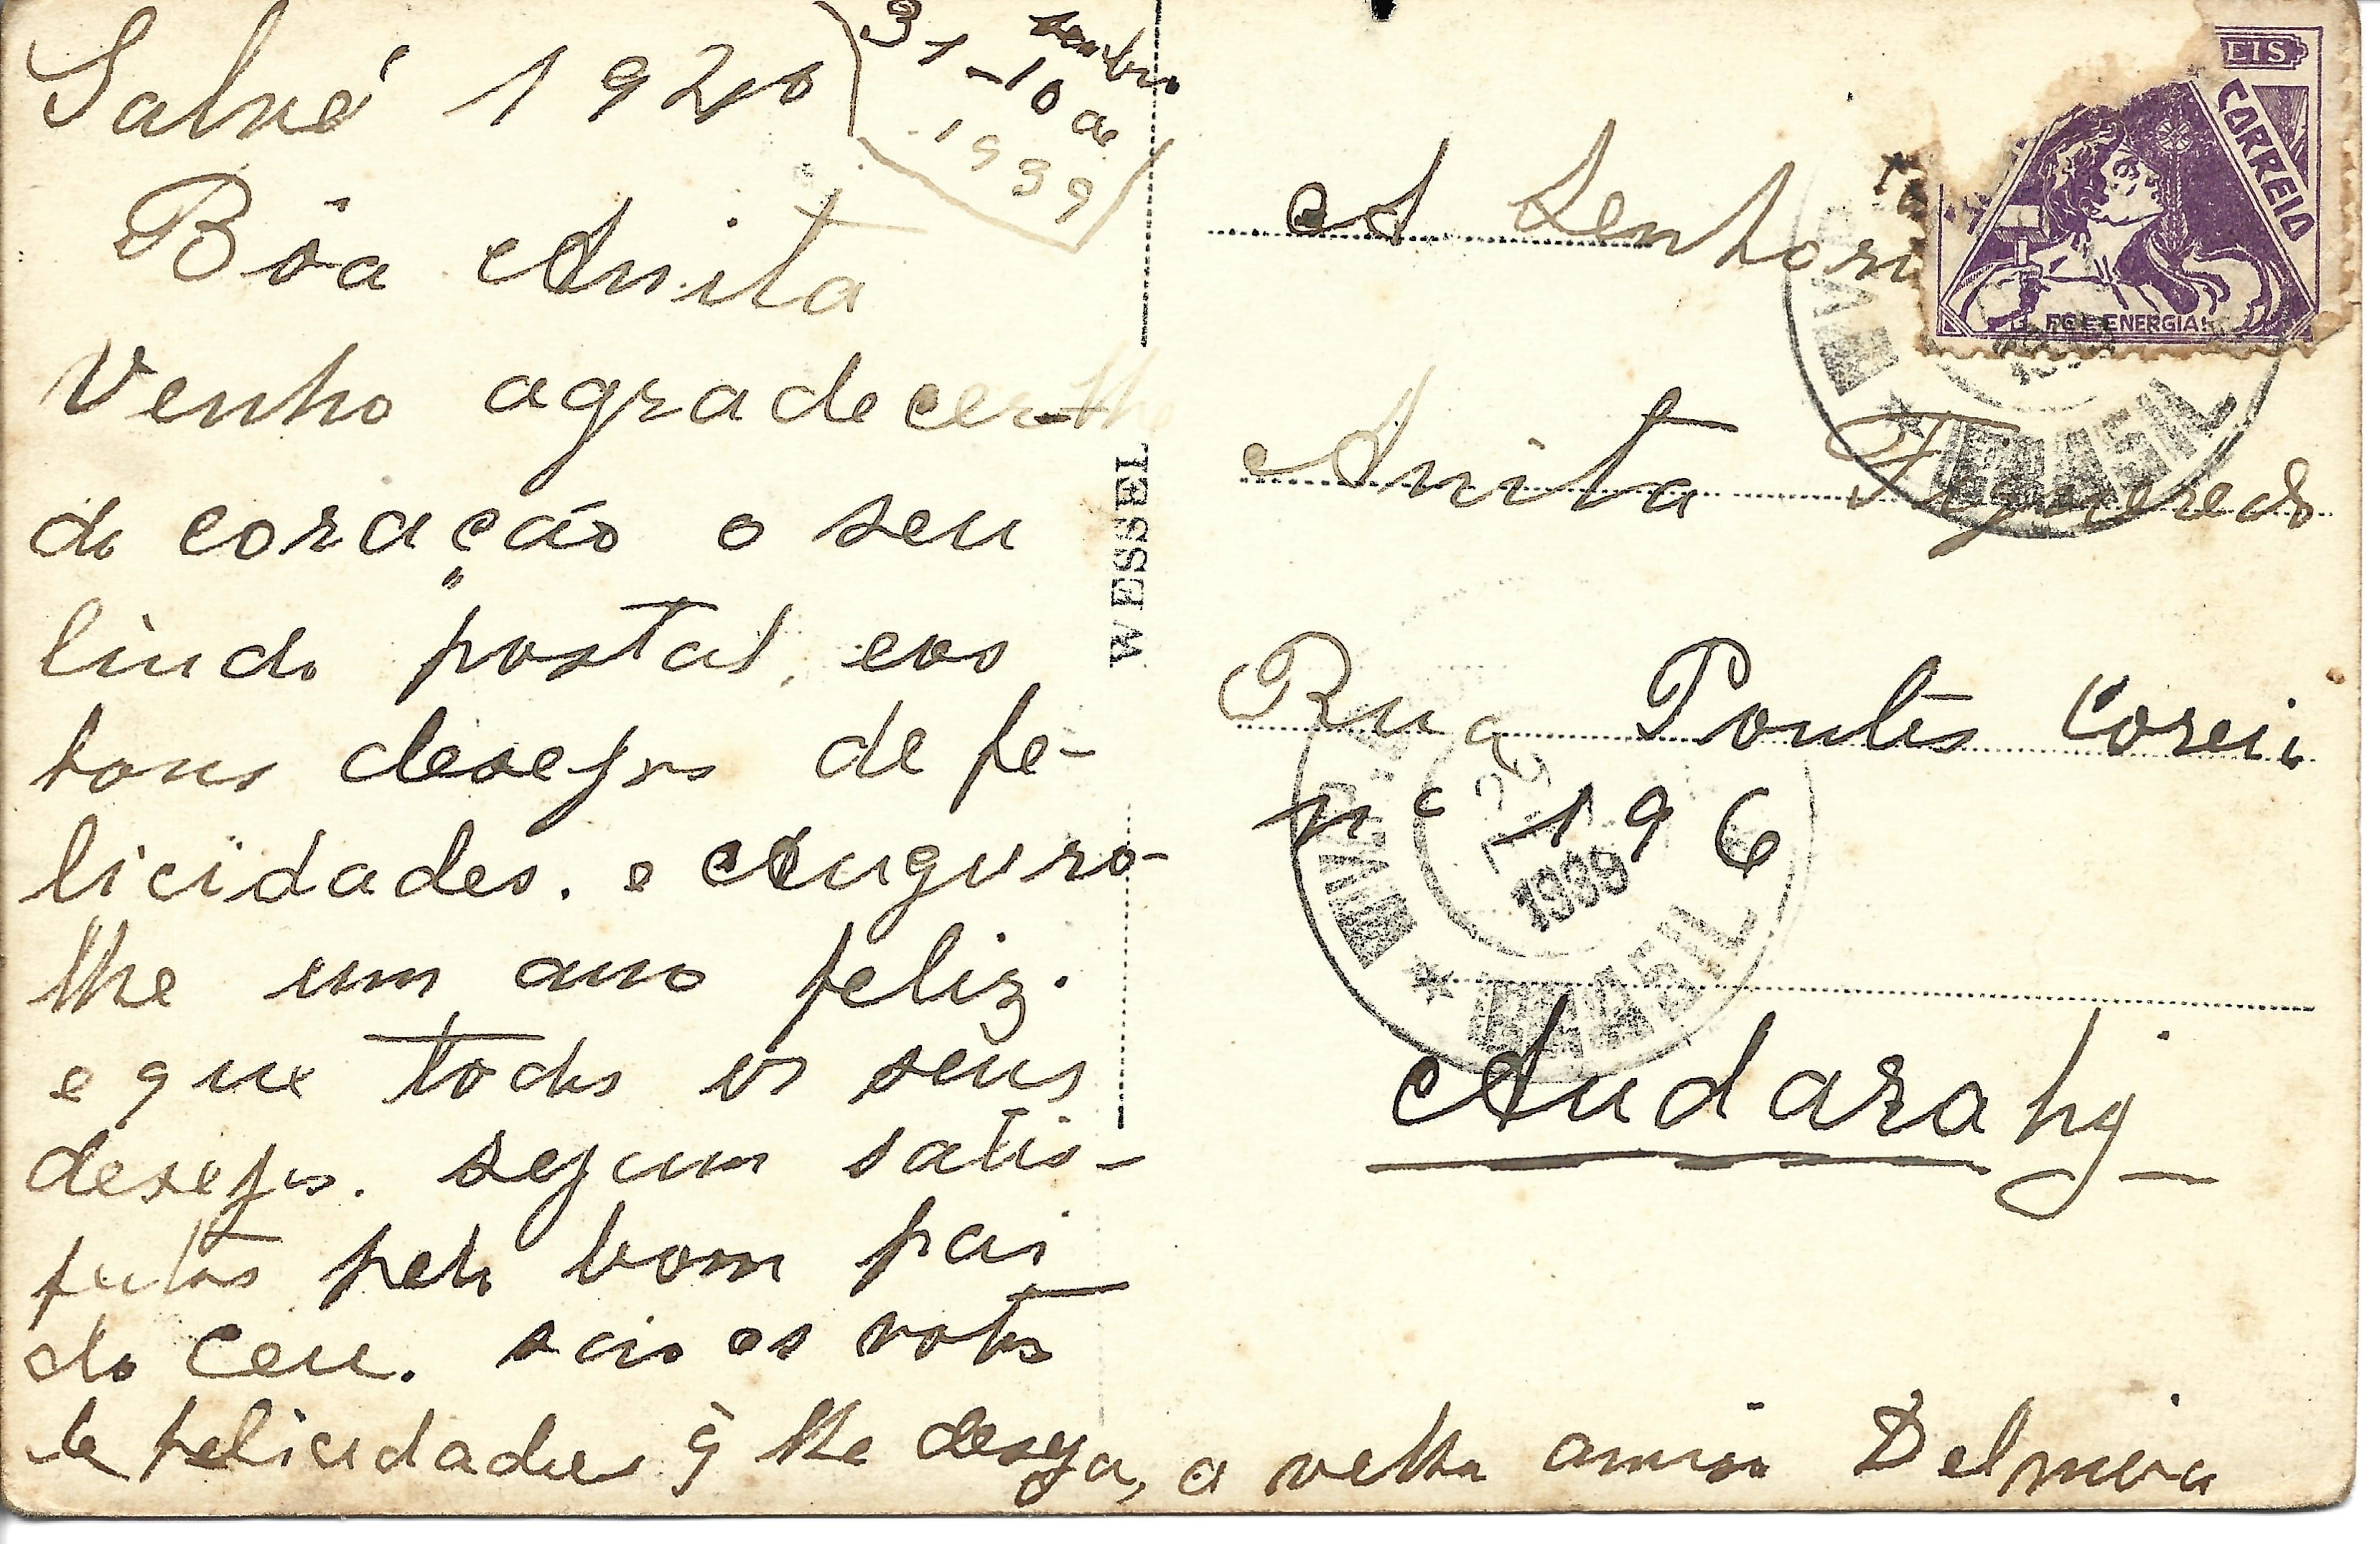 Salvé 1940
31-10 de
zembro
1939
Bôa Anita
Venho agradecer-lhe
do coração o seu
lindo postal, eos
bons desejos de fe-
licidades. e Auguro-
lhe um ano feliz.
e que todos os seus
desejos. sejum satis-
feitos pelo bom pai
do Ceu. são os votos
de felicidades q̃ lhe deseja, a velha amiga Delmira
WESSEL
A Senhora
Anita Figueredo
Rua Pontes Coreia
nº 196
Andarahy
EIS
CARREIA
FÉ E ENERGIA!
BRASIL
1939
BRASIL